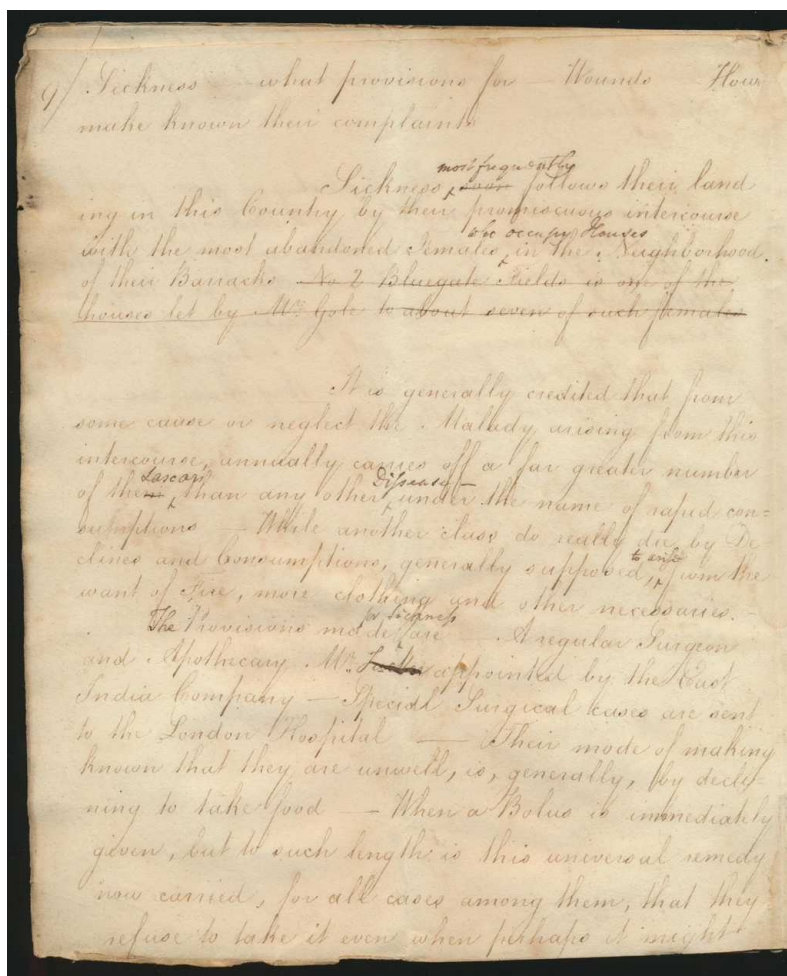 9/ Sickness — what provisions for — Wounds How
make known their complaints
most frequently
Sickness soon follows their land
ing in this Country by their promiscuous intercourse
who occupy Houses
with the most abandoned Females, in the Neighborhood.
of their Barracks No 2 Bluegate Fields is one of the
houses let by Mrs Gole to about seven of such females
It is generally credited that from
some cause or neglect the Malady arising from this
intercourse, annually carries off a far greater number
Lascars Diseases —
of them than any other under the name of rapid con=
sumptions — While another class do really die by De
to arise
clines and Consumptions, generally supposed, from the
want of Fire, more clothing and other necessaries. —
for Sickness
The Provisions made are — A regular Surgeon
and Apothecary Mr appointed by the East
India Company — Special Surgical cases are sent
to the London Hospital — Their mode of making
known that they are unwell, is, generally, by decli=
ning to take food — When a Bolus is immediately
given, but to such length is this universal remedy
now carried, for all cases among them, that they
refuse to take it even when perhaps it might